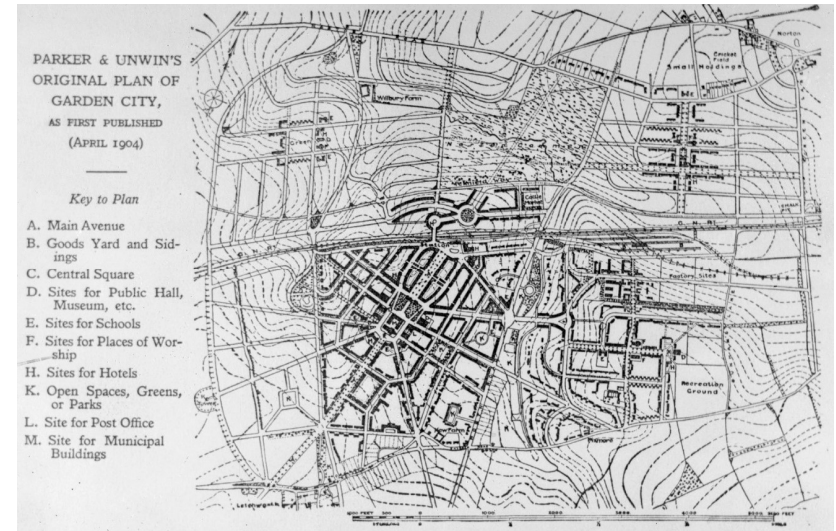 PARKER & UNWIN'S
ORIGINAL PLAN OF
GARDEN CITY,
AS FIRST PUBLISHED
(APRIL 1904)
Key to Plan
A. Main Avenue
B. Goods Yard and Sid-
ings
C. Central Square
D. Sites for Public Hall,
Museum, etc.
E. Sites for Schools
F. Sites for Places of Wor-
ship
H. Sites for Hotels
K. Open Spaces, Greens,
or Parks
L. Site for Post Office
M. Site for Municipal
Buildings
Norton
Cricket
Field
Small Holdings
Wilbury Farm
Green
Station
Factory Sites
Recreation
Ground
Letchworth